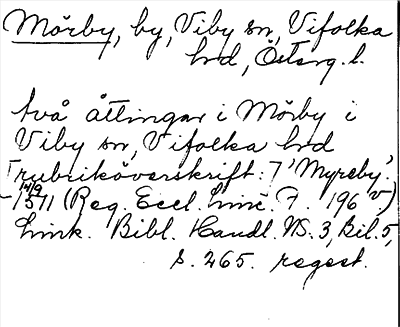 Mörby, by, Viby sn, Vifolka
hd, Österg. l.
två åttingar i Mörby i
Viby sn, Vifolka hd
[rubriköverskrift: 7 'Myreby'.
14/9
-1371 (Reg. Eccl. Linc. F. 196 v)
Link. Bibl. Handl. NS. 3, Bil. 5,
s. 265. regest.